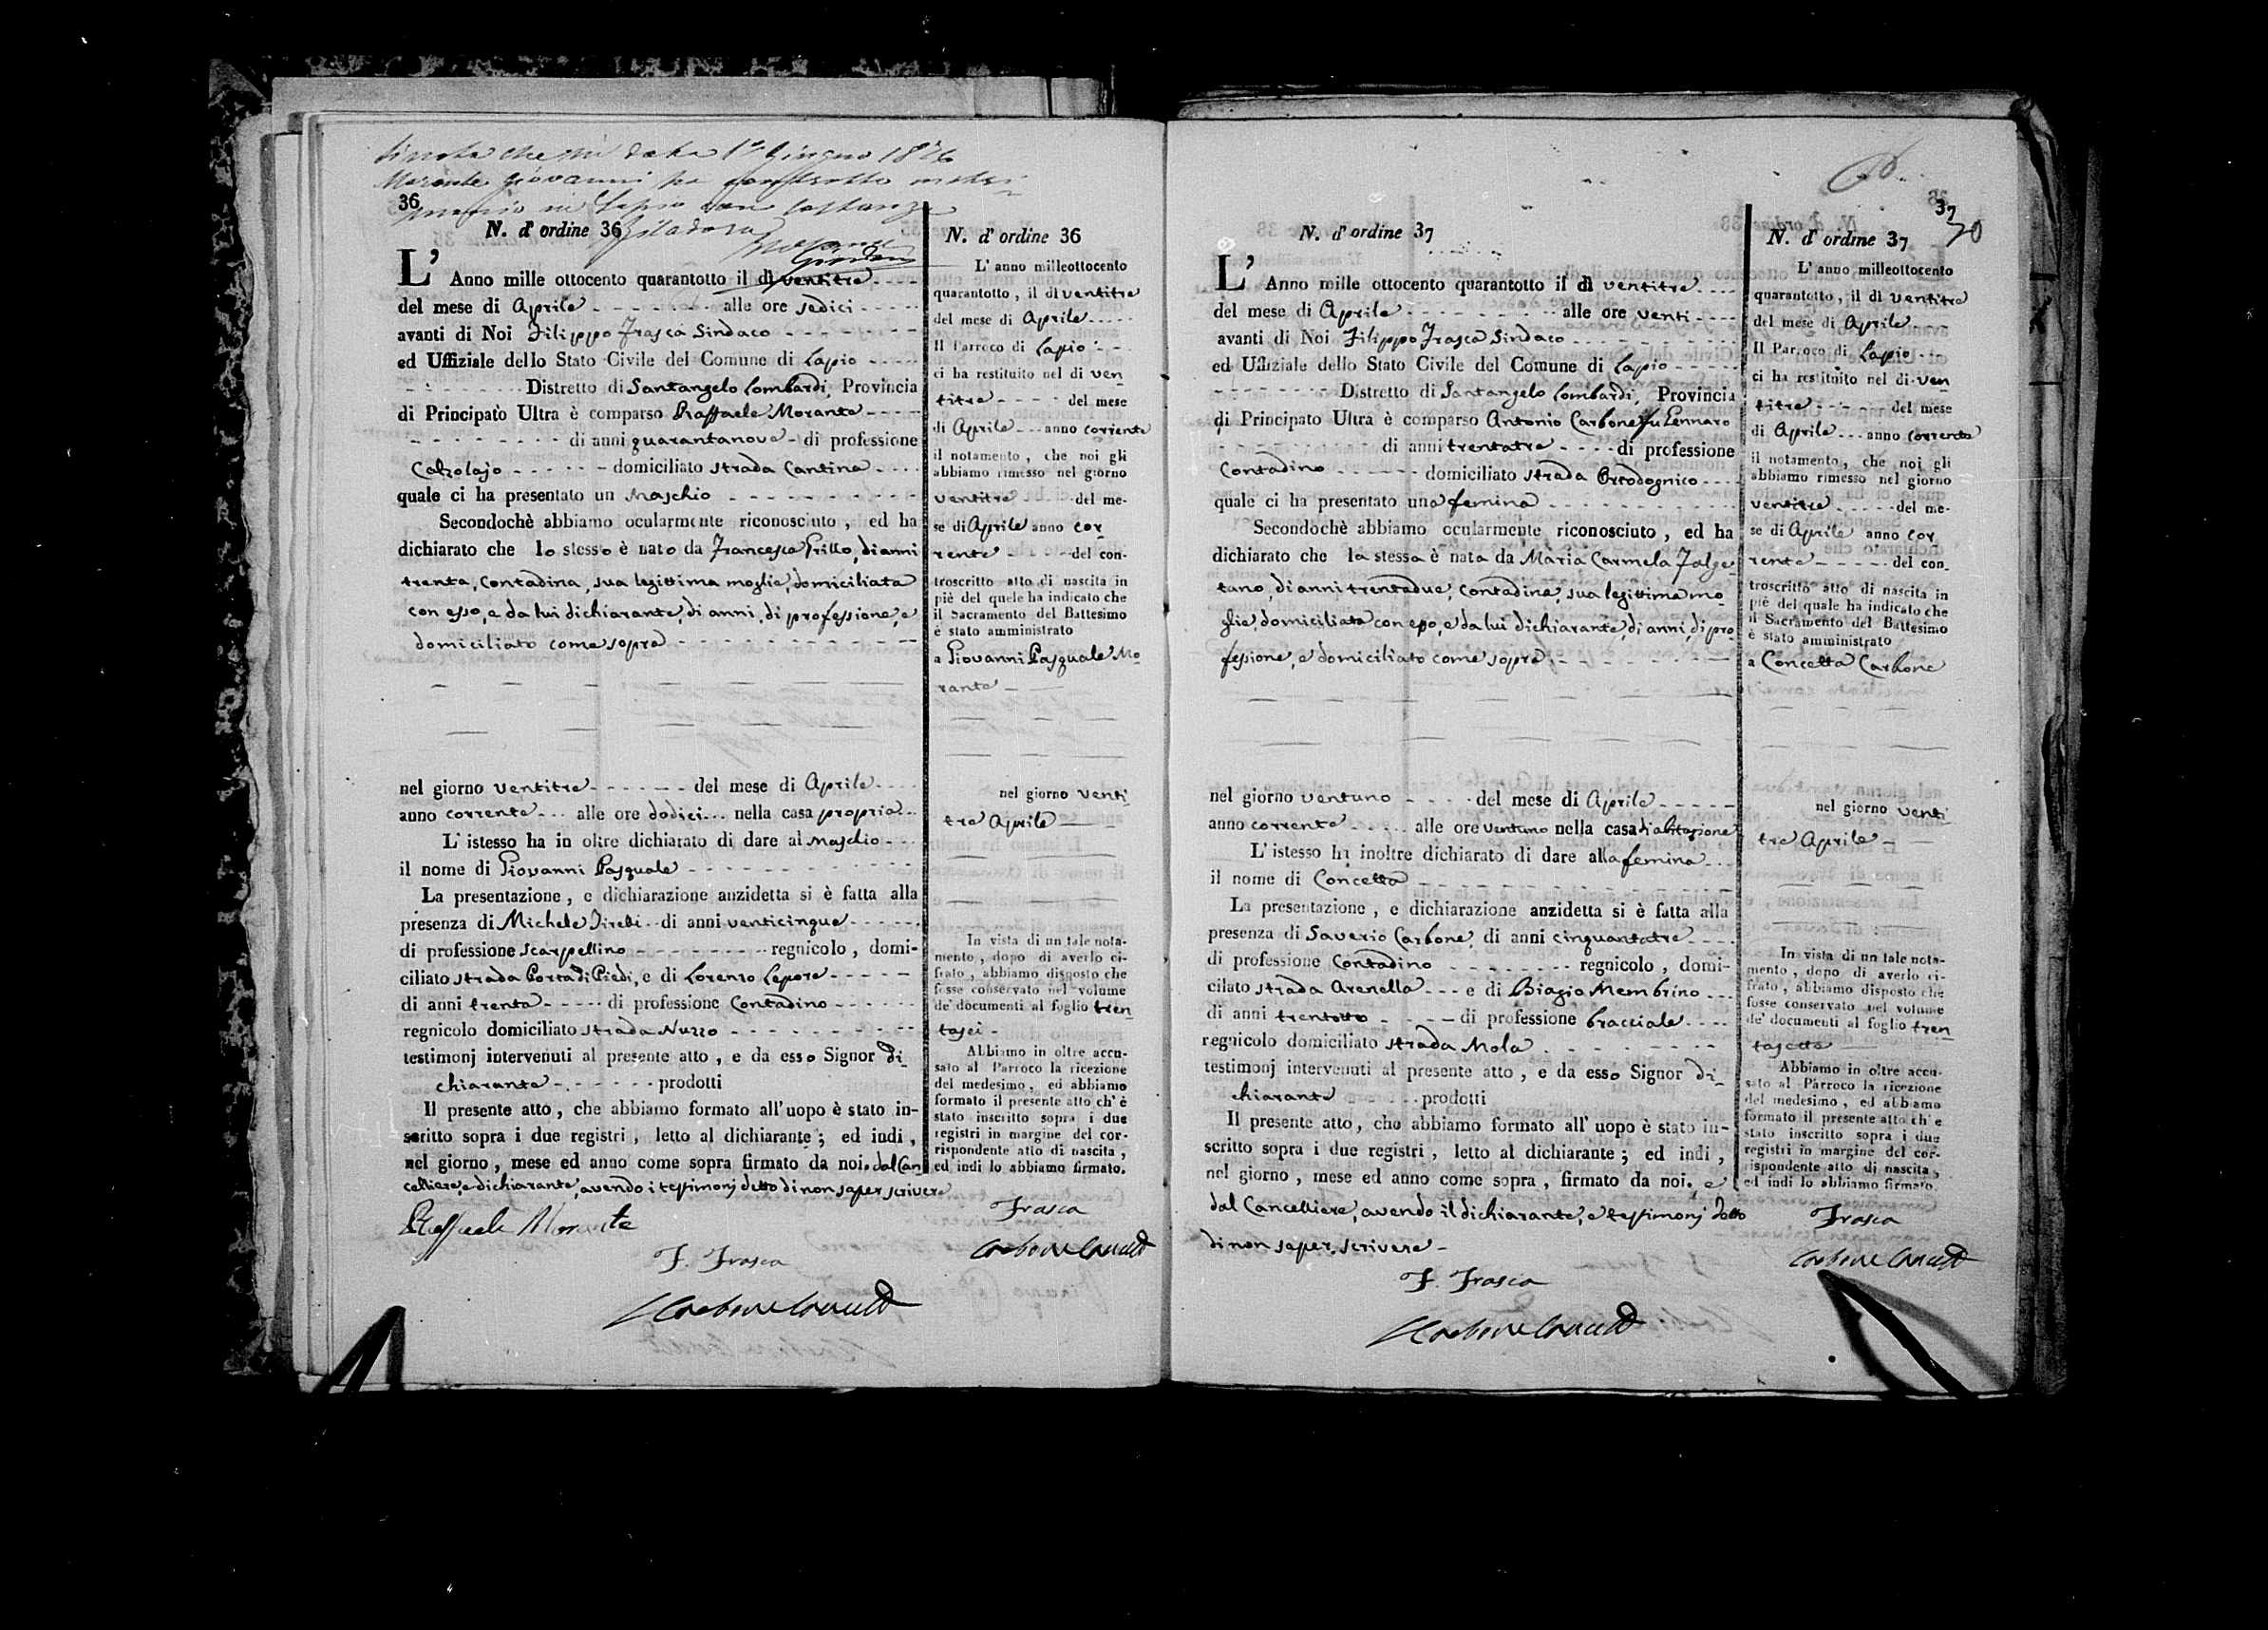 Si nota che in data 1° Giugno 18
Morante Giovanni ha contratto matri
monio in Lapio con Costanza
36
N. d' ordine 36
L' Anno mille ottocento quarantotto il dì ventitre
del mese di Aprile alle ore sedici
avanti di Noi Filippo Frasca Sindaco
ed Uffiziale dello Stato Civile del Comune di Lapio
Distretto di Santangelo Lombardi, Provincia
di Principato Ultra è comparso Raffaele Morante
di anni quarantanove di professione
Calzolajo domiciliato strada Cantina
quale ci ha presentato un Maschio
Secondochè abbiamo ocularmente riconosciuto, ed ha
dichiarato che lo stesso è nato da Francesca Grillo, di anni
trenta, Contadina, sua legittima moglie, domiciliata
con esso, e da lui dichiarante, di anni, di professione, e
domiciliato come sopra
nel giorno ventitre del mese di Aprile
anno corrente alle ore dodici nella casa propria
L' istesso ha in oltre dichiarato di dare al Maschio
il nome di Giovanni Pasquale
La presentazione, e dichiarazione anzidetta si è fatta alla
presenza di Michele di anni venticinque
di professione scarpellino regnicolo, domi-
ciliato strada Porta di Piedi, e di Lorenzo Lepore
di anni trenta di professione Contadino
regnicolo domiciliato strada Nuzzo
testimonj intervenuti al presente atto, e da esso Signor di-
chiarante prodotti
Il presente atto, che abbiamo formato all'uopo è stato in-
scritto sopra i due registri, letto al dichiarante; ed indi,
nel giorno, mese ed anno come sopra firmato da noi, dal Can
celliere, e dichiarante, avendo i testimonj detto di non saper scrivere
Raffaele Morante
F. Frasca
N. d' ordine 36
L' anno milleottocento
quarantotto, il dì ventitre
del mese di Aprile
Il Parroco di Lapio
ci ha restituito nel di ven
titre del mese
di Aprile anno corrente
il notamento, che noi gli
abbiamo rimesso nel giorno
ventitre del me-
se di Aprile anno cor
rente del con-
troscritto atto di nascita in
piè del quele ha indicato che
il Sacramento del Battesimo
è stato amministrato
a Giovanni Pasquale Mo
rante
nel giorno venti
tre Aprile
In vista di un tale nota-
mento, dopo di averlo ci-
frato, abbiamo disposto che
fosse conservato nel volume
de' documenti al foglio tren
tasei
Abbiamo in oltre accu-
sato al Parroco la ricezione
del medesimo, ed abbiamo
formato il presente atto ch' è
stato inscritto sopra i due
registri in margine del cor-
rispondente atto di nascita,
ed indi lo abbiamo firmato.
Frasca
37
70
N. d' ordine 37
L' Anno mille ottocento quarantotto il dì ventitre
del mese di Aprile alle ore venti
avanti di Noi Filippo Frasca Sindaco
ed Uffiziale dello Stato Civile del Comune di Lapio
Distretto di Santangelo Lombardi, Provincia
di Principato Ultra è comparso Antonio Carbone fu Gennaro
di anni trentatre di professione
Contadino domiciliato strada
quale ci ha presentato una femina
Secondochè abbiamo ocularmente riconosciuto, ed ha
dichiarato che la stessa è nata da Maria Carmela Falge
tano, di anni trentadue, Contadina, sua legittima mo
glie, domiciliata con esso, e da lui dichiarante, di anni, di pro
fessione, e domiciliato come sopra
nel giorno ventuno del mese di Aprile
anno corrente alle ore ventuno nella casa di abitazione
L' istesso ha inoltre dichiarato di dare alla femina
il nome di Concetta
La presentazione, e dichiarazione anzidetta si è fatta alla
presenza di Saverio Carbone, di anni cinquantatre
di professione Contadino regnicolo, domi-
cilato strada Arenella e di Biagio Membrino
di anni trentotto di professione bracciale
regnicolo domiciliato strada Mola
testimonj intervenuti al presente atto, e da esso Signor di-
chiarante prodotti
Il presente atto, che abbiamo formato all' uopo è stato in-
scritto sopra i due registri, letto al dichiarante; ed indi,
nel giorno, mese ed anno come sopra, firmato da noi, e
dal Cancelliere, avendo il dichiarante, e testimonj detto
di non saper scrivere
F. Frasca
N. d' ordine 37
L' anno milleottocento
quarantotto, il dì ventitre
del mese di Aprile
Il Parroco di Lapio
ci ha restituito nel di ven
titre del mese
di Aprile anno corrente
il notamento, che noi gli
abbiamo rimesso nel giorno
ventitre del me-
se di Aprile anno cor
rente del con-
troscritto atto di nascita in
piè del quale ha indicato che
il Sacramento del Battesimo
è stato amministrato
a Concetta Carbone
nel giorno venti
tre Aprile
In vista di un tale nota-
mento, dopo di averlo ci-
frato, abbiamo disposto che
fosse conservato nel volume
de' documenti al foglio tren
tasette
Abbiamo in oltre accu-
sato al Parroco la ricezione
del medesimo, ed abbiamo
formato il presente atto ch' e
stato inscritto sopra i due
registri in margine del cor-
rispondente atto di nascita,
ed indi lo abbiamo firmato.
Frasca